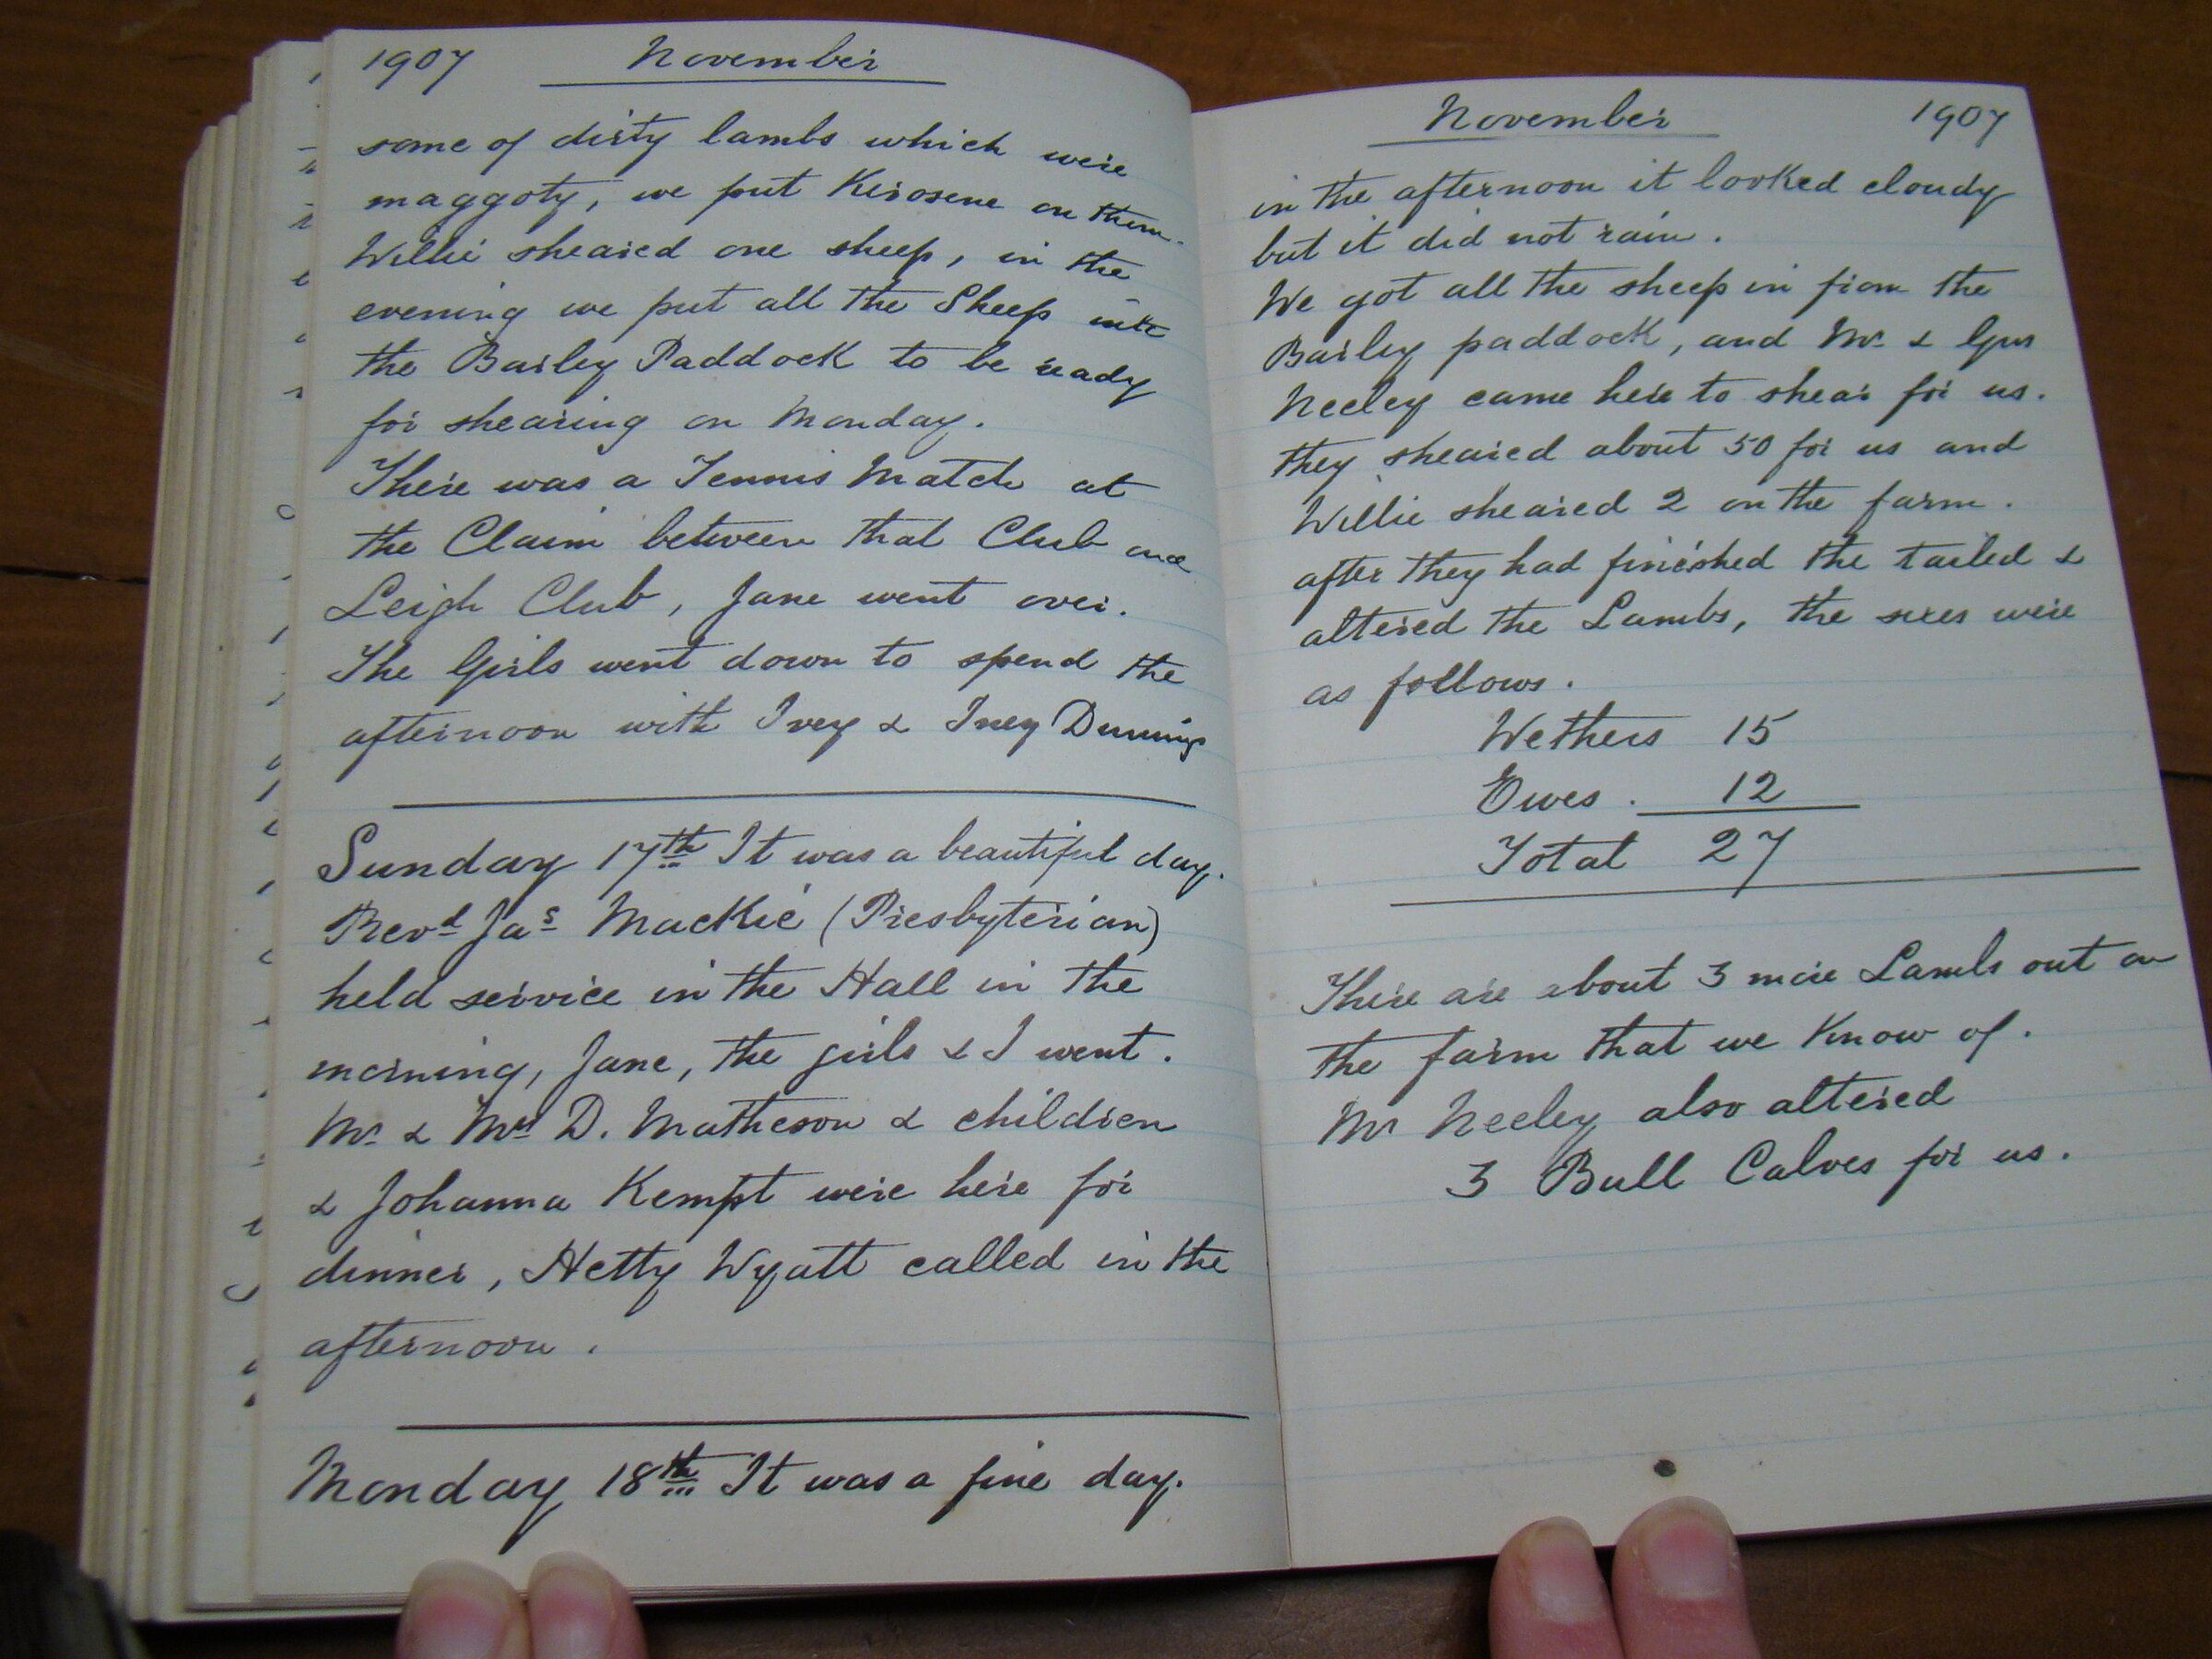 1907 November
some of dirty lambs which were
maggoty, we put Kerosene on them.
Willie sheared one sheep, in the
evening we put all the Sheep into
the Barley Paddock to be ready
for shearing on Monday.
There was a Tennis Match at
the Claim between that Club and
Leigh Club, Jane went over.
The Girls went down to spend the
afternoon with Ivey &
Sunday 17th It was a beautiful day.
Revd Jas Mackie (Presbyterian)
held service in the Hall in the
morning, Jane, the girls & I went.
Mr & Mrs D. Matheson & children
& Johanna Kempt were here for
dinner, Hetty Wyatt called in the
afternoon.
Monday 18th It was a fine day.
November 1907
in the afternoon it looked cloudy
but it did not rain.
We got all the sheep in from the
Barley paddock, and Mr & Gus
Neeley came here to shear for us.
they sheared about 50 for us and
Willie sheared 2 on the farm.
after they had finished the tailed &
altered the Lambs, the sexes were
as follows.
Wethers 15
Ewes. 12
Total 27
There are about 3 more Lambs out on
the farm that we Know of.
Mr Neeley also altered
3 Bull Calves for us.